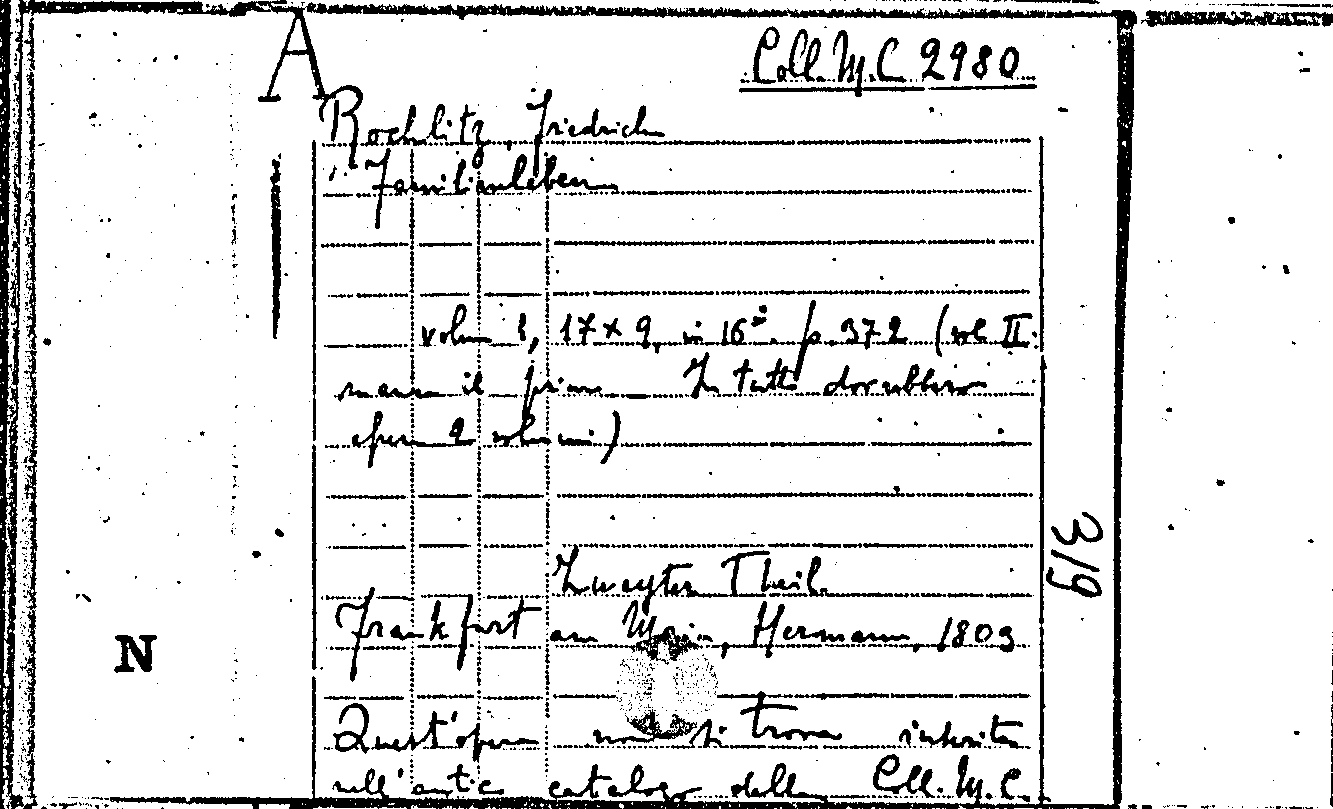 A
Coll. M.C. 2980
Rochlitz, Friedrich
Familienleben
volumi 1, 17 x 9, in 16° p. 372 (vol. II.
manca il primo. In tutto dovrebbero
essere 2 volumi)
Zweyter Theil.
Frankfurt am Main, Hermann, 1803
Quest'opera non si trova inserita
nell'antico catalogo della Coll. M.C.
319
N